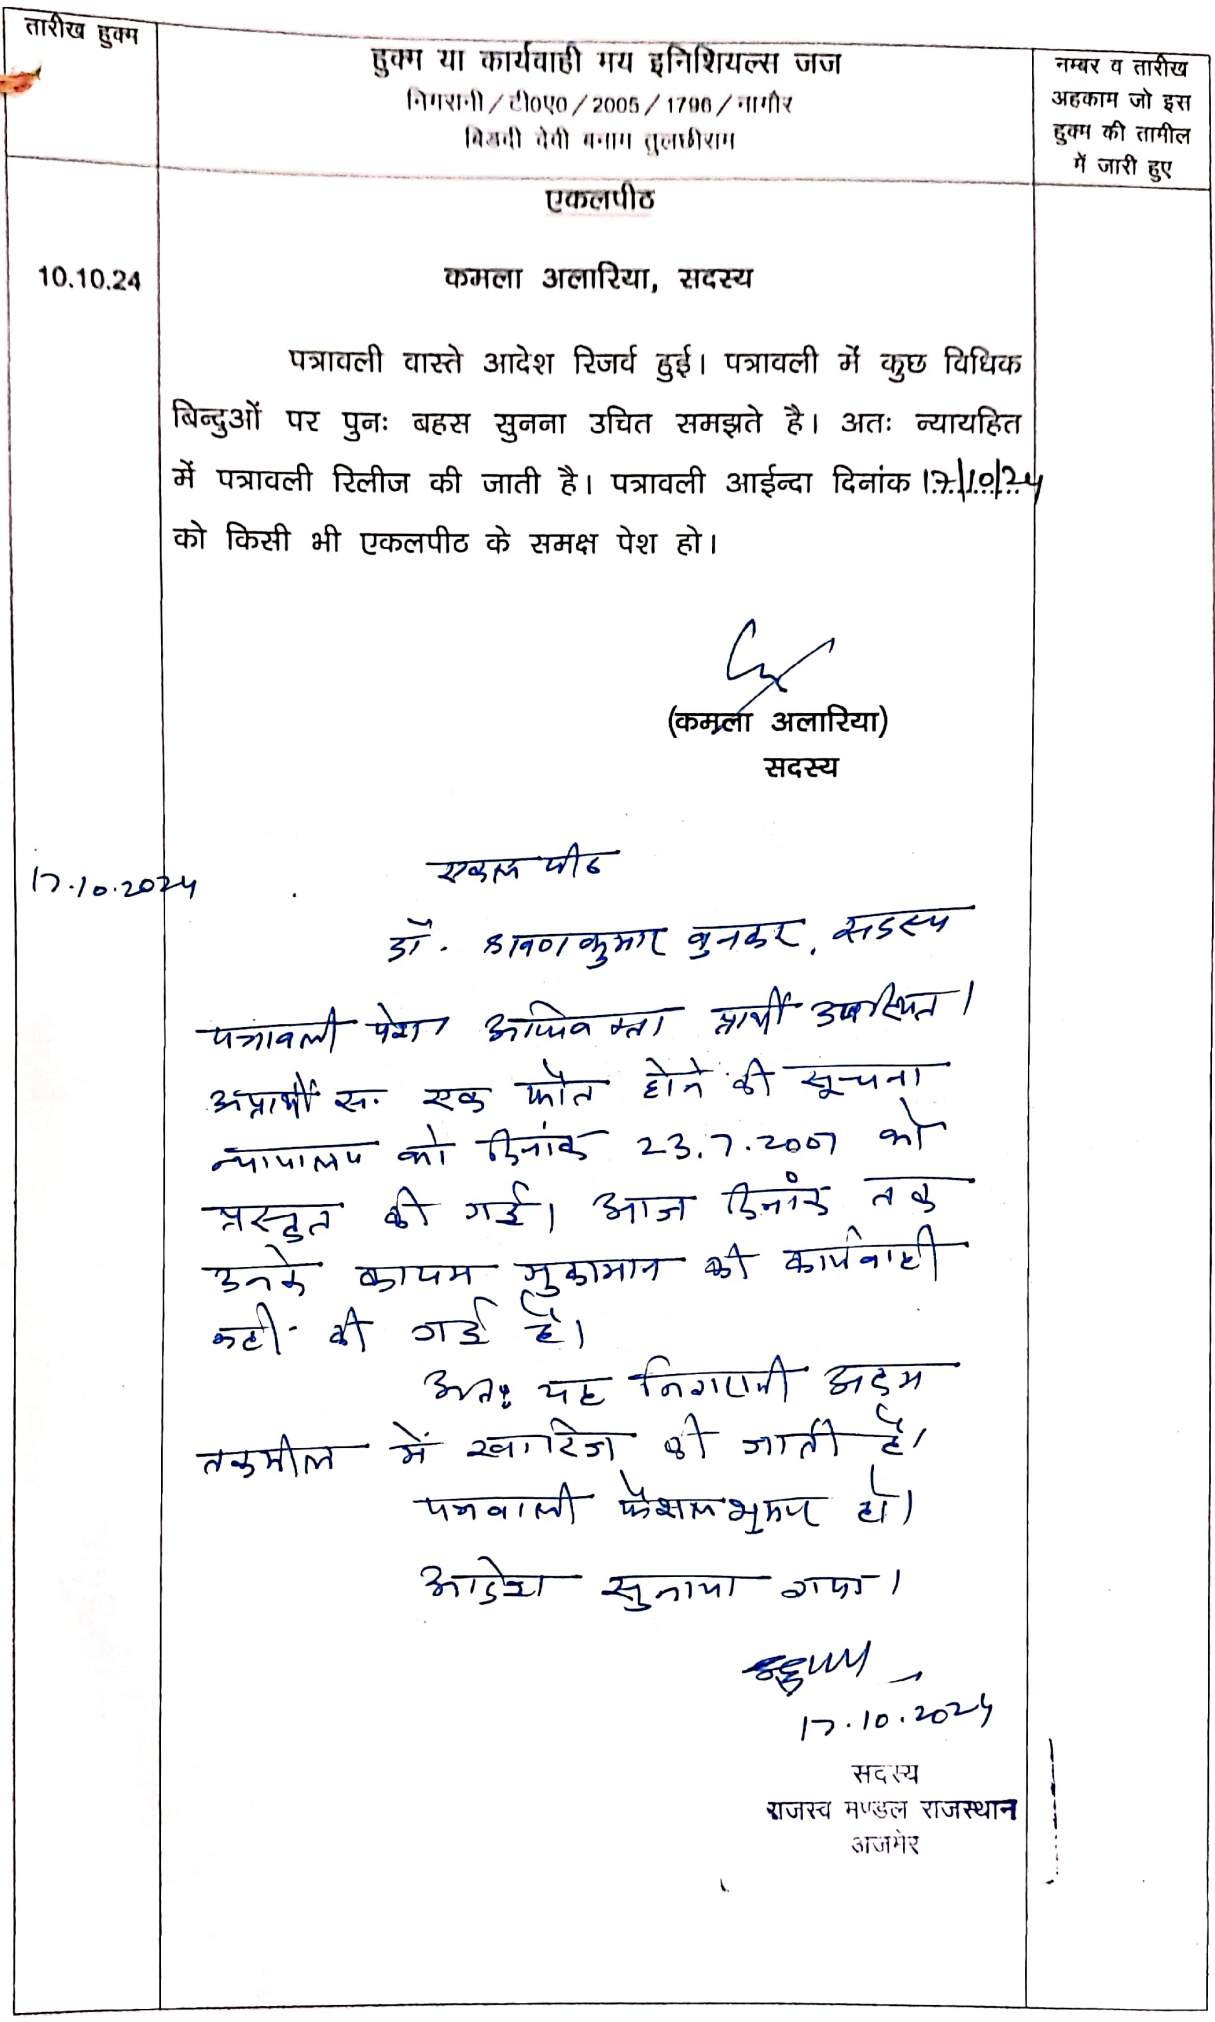 तारीख हुक्म
हुक्म या कार्यवाही मय इनिशियल्स जज
निगरानी/टी०ए०/2005/1796/नागौर
बिडदी देवी बनाम तुलछीराम
नम्बर व तारीख
अहकाम जो इस
हुक्म की तामील
में जारी हुए
एकलपीठ
10.10.24
कमला अलारिया, सदस्य
पत्रावली वास्ते आदेश रिजर्व हुई। पत्रावली में कुछ विधिक
बिन्दुओं पर पुनः बहस सुनना उचित समझते है। अतः न्यायहित
में पत्रावली रिलीज की जाती है। पत्रावली आईन्दा दिनांक 17/10/24
को किसी भी एकलपीठ के समक्ष पेश हो।
(कमला अलारिया)
सदस्य
17.10.2024
एकल पीठ
डॉ. श्रवण कुमार बुनकर, सदस्य
पत्रावली पेश। अधिवक्ता प्रार्थी उपस्थित।
अप्रार्थी सं. एक फौत होने की सूचना
न्यायालय को दिनांक 23.7.2007 को
प्रस्तुत की गई। आज दिनांक तक
उनके कायम मुकामान की कार्यवाही
नही की गई है।
अतः यह निगरानी अदम
तकमील में खारिज की जाती है।
पत्रवाली फैसलशुमार हो।
आदेश सुनाया गया।
17.10.2024
सदस्य
राजस्व मण्डल राजस्थान
अजमेर